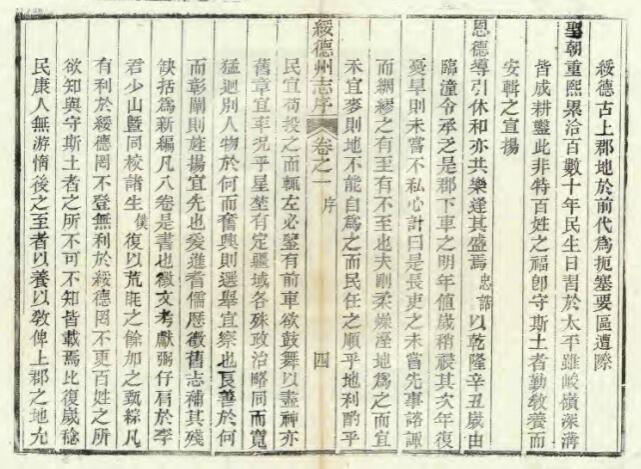 綏德古上郡地於前代爲扼塞要區遭際
聖朝重熙累洽百數十年民生日習於太平雖峻嶺深溝
皆成耕鑿此非特百姓之福卽守斯土者勤敎養而
安輯之宣揚
恩德導引休和亦共樂逢其盛焉忠誥以乾隆辛丑歲由
臨潼令承乏是郡下車之明年值歲稍祲其次年復
憂旱則未嘗不私心計曰是長吏之未嘗先事諮諏
而綢繆之有至有不至也夫剛柔燥溼地爲之而宜
禾宜麥則地不能自爲之而民任之順乎地利酌乎
綏德州志序 卷之一 序 四
民宜苟投之而輒左必鑒有前車欲鼓舞以盡神亦
舊章宜率況乎星埜有定疆域各殊政治略同而寬
猛迥別人物於何而奮興則選舉宜察也良善於何
而彰闡則旌揚宜先也爰進耆儒歷徵舊志補其殘
缺括爲新編凡八卷是書也徵文考獻弼仔肩於李
君少山曁同校諸生僕復以荒眊之餘加之甄綜凡
有利於綏德罔不登無利於綏德罔不更百姓之所
欲知與守斯土者之所不可不知皆載焉比復歲稔
民康人無游惰後之至者以養以敎俾上郡之地允